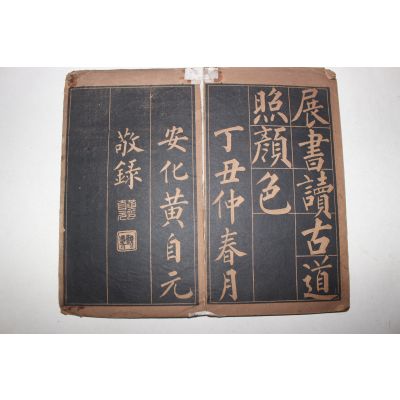 展書讀古道
照顏色
丁丑仲春月
安化黃自元
敬錄